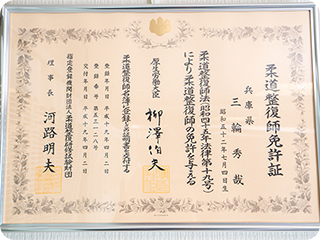 柔道整復師免許証
兵庫県
三輪秀哉
昭和五十二年七月四日生
柔道整復師法(昭和四十五年法律第十九号)
により柔道整復師の免許を与える
厚生労働大臣
柳澤伯夫
柔道整復師名簿に登録し免許証明書を交付する
登録年月日 平成十九年四月二日
交付年月日 平成十九年四月二日
指定登録機関財団法人柔道整復研修試験財団
理事長
河路明夫